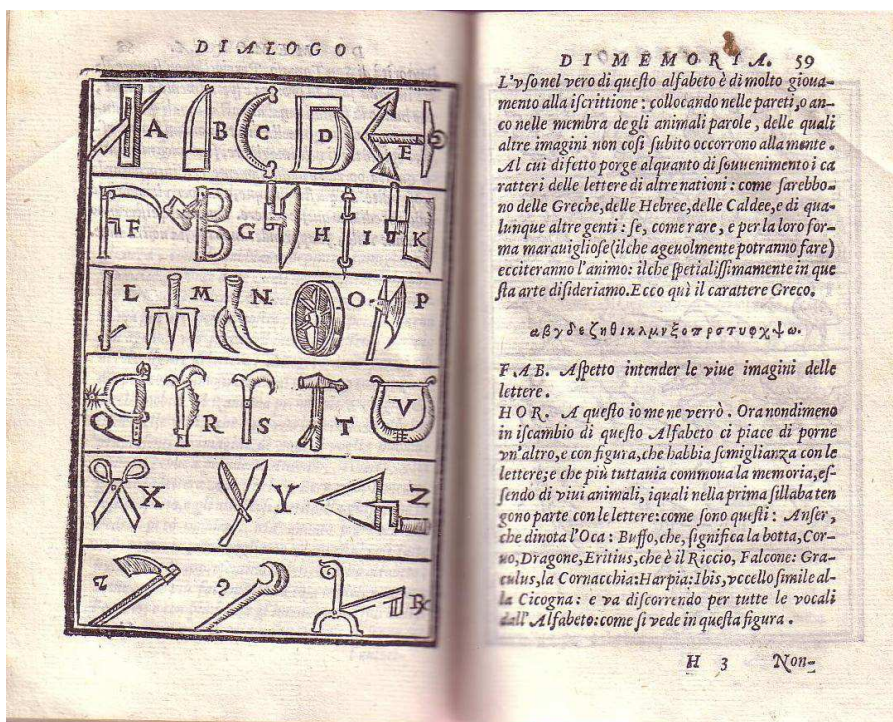 DIALOGO
A B C D E
F G H I K
L M N O P
Q R S T V
X Y Z
DI MEMORIA. 59
L'vſo nel vero di queſto alfabeto è di molto gioua-
mento alla iſcrittione: collocando nelle pareti, o an-
co nelle membra degli animali parole, delle quali
altre imagini non coſi ſubito occorrono alla mente.
Al cui difetto porge alquanto di ſouuenimento i ca
ratteri delle lettere di altre nationi: come ſarebbo-
no delle Greche, delle Hebree, delle Caldee, e di qua-
lunque altre genti: ſe, come rare, e per la loro for-
ma marauiglioſe (il che ageuolmente potranno fare)
ecciteranno l'animo: il che ſpetialiſſimamente in que
ſta arte diſideriamo. Ecco quì il carattere Greco.
αβγδεζηθικλμνξοπρςτυφχψω.
FAB. Aſpetto intender le viue imagini delle
lettere.
HOR. A queſto io me ne verrò. Ora nondimeno
in iſcambio di queſto Alfabeto ci piace di porne
vn'altro, e con figura, che habbia ſomiglianza con le
lettere; e che più tuttauia commoua la memoria, eſ-
ſendo di viui animali, i quali nella prima ſillaba ten
gono parte con le lettere: come ſono queſti: Anſer,
che dinota l'Oca: Buffo, che, ſignifica la botta, Cor-
uo, Dragone, Eritius, che è il Riccio, Falcone: Gra-
culus, la Cornacchia: Harpia: Ibis, vccello ſimile al-
la Cicogna: e va diſcorrendo per tutte le vocali
dall'Alfabeto: come ſi vede in queſta figura.
H 3 Non-